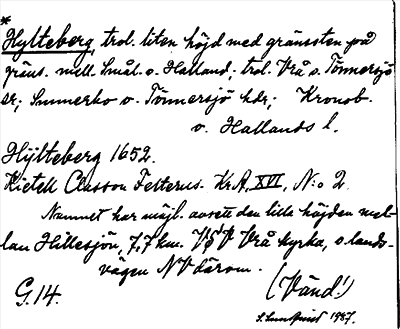 *
Hylteberg, trol. liten höjd med gränssten på
gräns. mell. Smål. o. Halland; trol. Vrå o. Tönnersjö
sr; Sunnerbo o. Tönnersjö hdr; Kronob.
o. Hallands l.
Hÿlteberg 1652.
Kietell Classon Felterus. KrA, XVI, N:o 2.
Namnet har möjl. avsett den lilla höjden mel-
lan Hillesjön, 7,7 km. VSV Vrå kyrka, o. lands-
vägen NV därom.
G. 14.
(Vänd!)
S. Lundquist 1937.